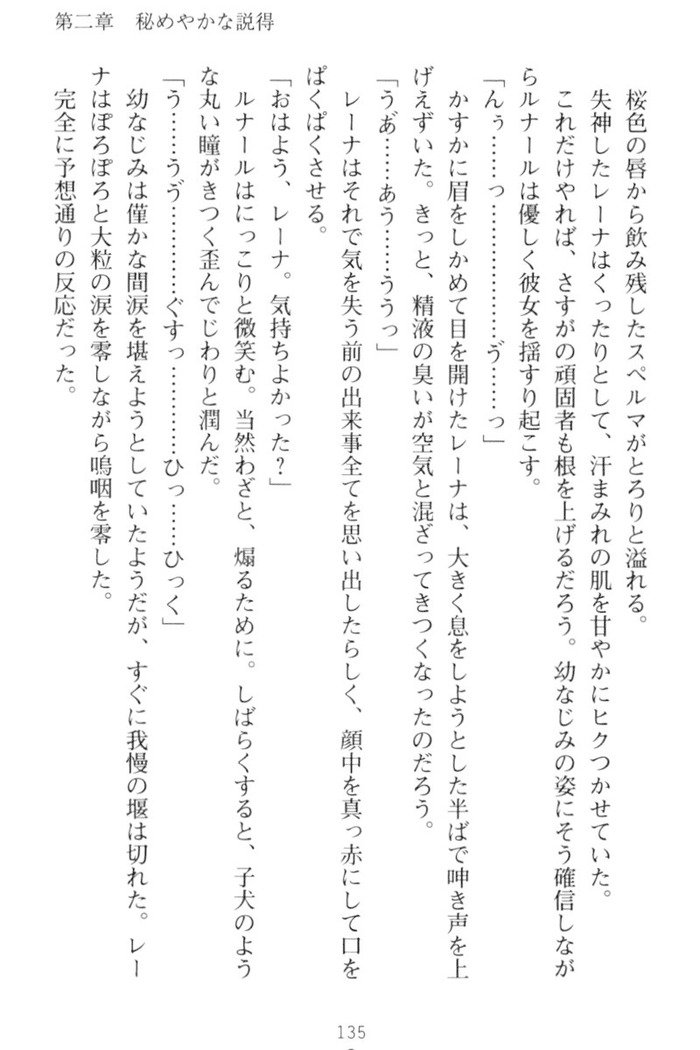 第二章　秘めやかな説得
桜色の唇から飲み残したスペルマがとろりと溢れる。
失神したレーナはくったりとして、汗まみれの肌を甘やかにヒクつかせていた。
これだけやれば、さすがの頑固者も根を上げるだろう。幼なじみの姿にそう確信しなが
らルナールは優しく彼女を揺すり起こす。
「んぅ……っ………………ゔ……っ」
かすかに眉をしかめて目を開けたレーナは、大きく息をしようとした半ばで呻き声を上
げえずいた。きっと、精液の臭いが空気と混ざってきつくなったのだろう。
「うあ゙……ぁう……ううっ」
レーナはそれで気を失う前の出来事全てを思い出したらしく、顔中を真っ赤にして口を
ぱくぱくさせる。
「おはよう、レーナ。気持ちよかった？」
ルナールはにっこりと微笑む。当然わざと、煽るために。しばらくすると、子犬のよう
な丸い瞳がきつく歪んでじわりと潤んだ。
「う……うゔ…………ぐすっ…………ひっ……ひっく」
幼なじみは僅かな間涙を堪えようとしていたようだが、すぐに我慢の堰は切れた。レー
ナはぽろぽろと大粒の涙を零しながら嗚咽を零した。
完全に予想通りの反応だった。
135